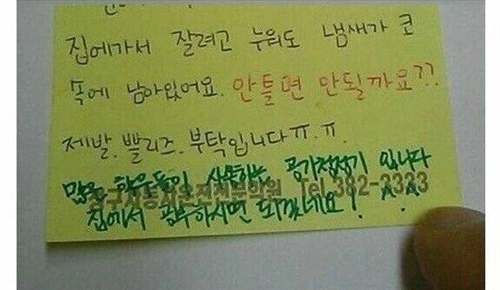 집에가서 잘려고 누워도 냄새가 코
속에 남아있어요. 안틀면 안될까요??
제발. 쁠리즈. 부탁입니다ㅠ.ㅠ.
많은 학우들이 사용하는 공기청정기 입니다
운전전문의원 Tel.382-3333
집에서 공부하시면 되겠네요! ^^